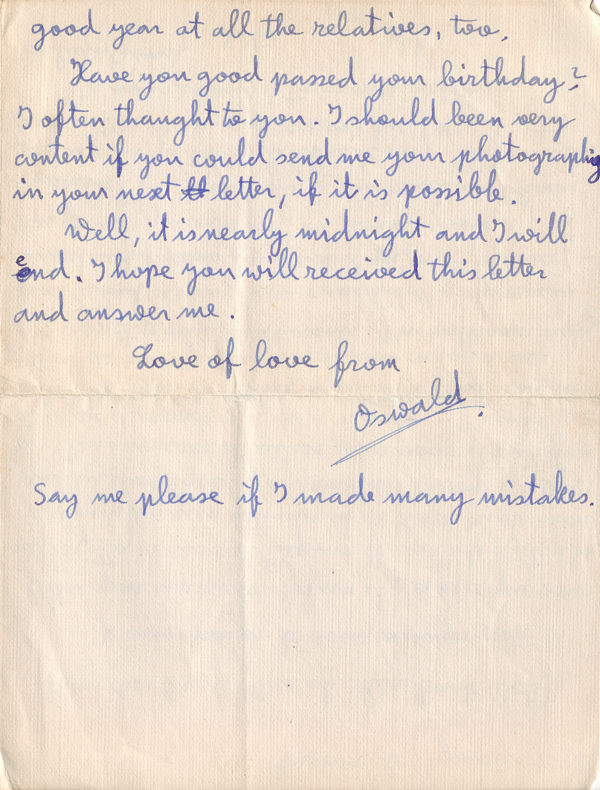 good year at all the relatives, too.
Have you good passed your birthday?
I often thaught to you. I should been very
content if you could send me your photographing
in your next letter, if it is possible.
Well, it is nearly midnight and I will
end. I hope you will received this letter
and answer me.
Love of love from
Oswald.
Say me please if I made many mistakes.